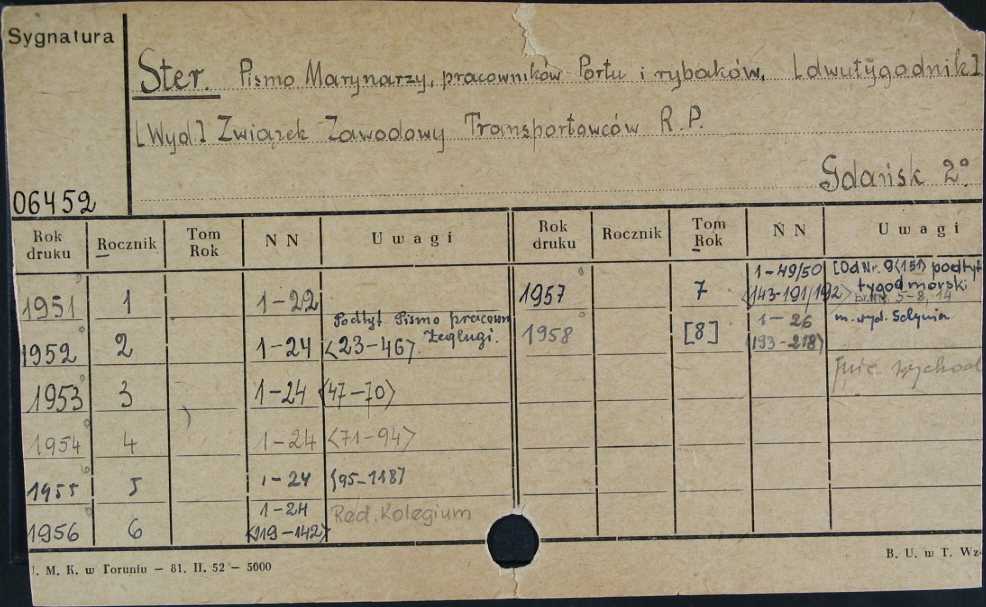 Sygnatura
Ster. Pismo Marynarzy, pracowników Portu i rybaków. [dwutygodnik]
[Wyd.] Związek Zawodowy Transportowców R.P.
Gdańsk 2°.
06452
Rok druku Rocznik Tom Rok N N Uwagi Rok druku Rocznik Tom Rok N N Uwagi
1951 1 1-22 1957 7 1-49/50 <143-191/192> [Od Nr. 9<151> podtyt tygod morski
br. nr. 5-8, 14
1952 2 1-24 <23-46> Podtyt Pismo pracown Żeglugi. 1958 [8] 1-26 <193-218> m. wyd. Gdynia
1953 3 1-24 <47-70>
1954 4 1-24 <71-94>
1955 5 1-24 <95-118>
1956 6 1-24 <119-142> Red. Kolegium
M. K. w Toruniu - 81. II. 52 - 5000
B. U. w T. Wz